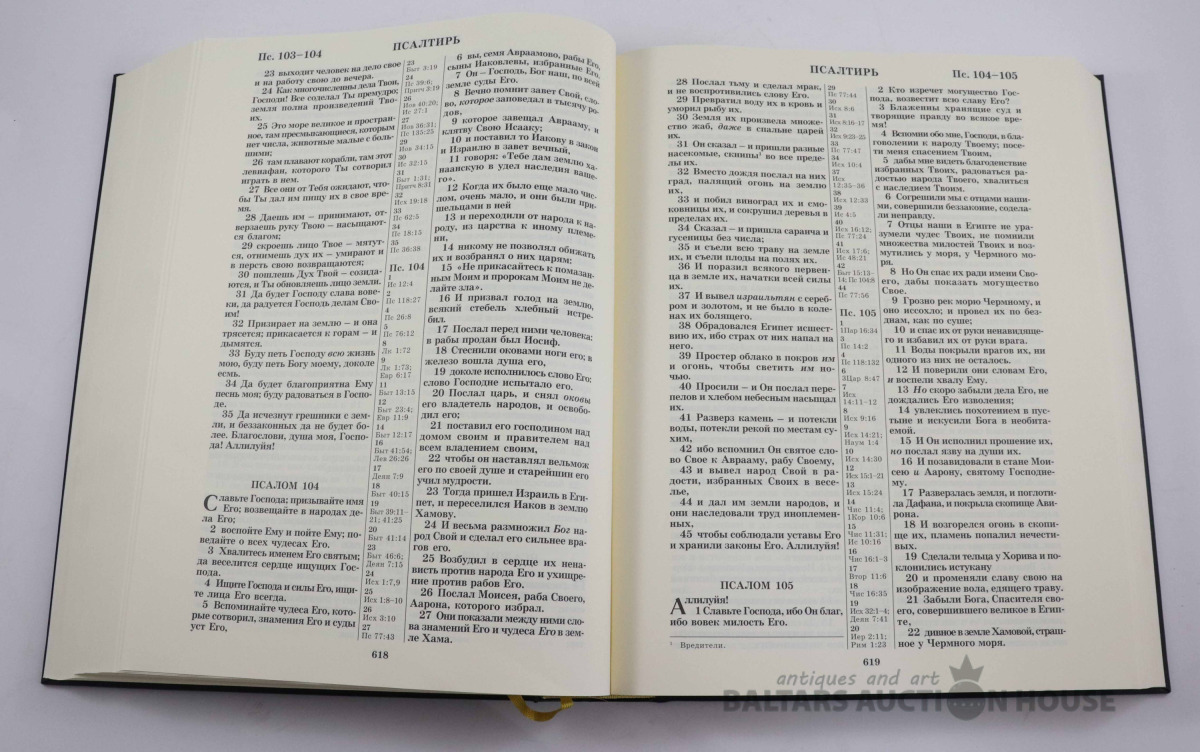 Пс. 103–104
ПСАЛТИРЬ
23 выходит человек на дело свое
и на работу свою до вечера.
24 Как многочисленны дела Твои,
Господи! Все соделал Ты премудро;
земля полна произведений Тво-
их.
25 Это море великое и простран-
ное, там пресмыкающиеся, которым
нет числа, животные малые с боль-
шими;
26 там плавают корабли, там этот
левиафан, которого Ты сотворил
играть в нем.
27 Все они от Тебя ожидают, что-
бы Ты дал им пищу их в свое вре-
мя.
28 Даешь им – принимают, от-
верзаешь руку Твою – насыщают-
ся благом;
29 скроешь лицо Твое – мятут-
ся, отнимешь дух их – умирают и
в персть свою возвращаются;
30 пошлешь Дух Твой – созида-
ются, и Ты обновляешь лицо земли.
31 Да будет Господу слава вове-
ки, да радуется Господь делам Сво-
им!
32 Призирает на землю – и она
трясется; прикасается к горам – и
дымятся.
33 Буду петь Господу всю жизнь
мою, буду петь Богу моему, доколе
есмь.
34 Да будет благоприятна Ему
песнь моя; буду радоваться о Госпо-
де.
35 Да исчезнут грешники с зем-
ли, и беззаконных да не будет бо-
лее. Благослови, душа моя, Госпо-
да! Аллилуйя!
ПСАЛОМ 104
Славьте Господа; призывайте имя
Его; возвещайте в народах де-
ла Его;
2 воспойте Ему и пойте Ему; по-
ведайте о всех чудесах Его.
3 Хвалитесь именем Его святым;
да веселится сердце ищущих Гос-
пода.
4 Ищите Господа и силы Его, ищи-
те лица Его всегда.
5 Вспоминайте чудеса Его, кото-
рые сотворил, знамения Его и суды
уст Его,
23
Быт 3:19
24
Пс 39:6;
Притч 3:19
26
Иов 40:20;
Ис 27:1
27
Иов 36:31;
Пс 135:25
29
Иов 34:15
30
Ис 32:15
31
Быт 1:31;
Притч 8:31
32
Исх 19:18
33
Пс 62:5
34
Пс 18:15
35
Пс 36:38
Пс. 104
1
Ис 12:4
2
Пс 118:27
4
Пс 26:8
5
Пс 76:12
8
Лк 1:72
9
Лк 1:73;
Евр 6:17
11
Быт 13:15
12
Быт 23:4;
Евр 11:9
14
Быт 12:17
16
Быт 41:54;
Лев 26:26
17
Деян 7:9
18
Быт 40:15
19
Быт 39:11–
21; 41:25
20
Быт 41:14
23
Быт 46:6;
Деян 7:15
24
Исх 1:7,9
25
Исх 1:8–10
26
Исх 3:10
27
Пс 77:43
6 вы, семя Авраамово, рабы Его,
сыны Иаковлевы, избранные Его.
7 Он – Господь, Бог наш, по всей
земле суды Его.
8 Вечно помнит завет Свой, сло-
во, которое заповедал в тысячу ро-
дов,
9 которое завещал Аврааму, и
клятву Свою Исааку;
10 и поставил то Иакову в закон
и Израилю в завет вечный,
11 говоря: «Тебе дам землю ха-
наанскую в удел наследия ваше-
го».
12 Когда их было еще мало чис-
лом, очень мало, и они были при-
шельцами в ней
13 и переходили от народа к на-
роду, из царства к иному племе-
ни,
14 никому не позволял обижать
их и возбранял о них царям:
15 «Не прикасайтесь к помазан-
ным Моим и пророкам Моим не де-
лайте зла».
16 И призвал голод на землю,
всякий стебель хлебный истре-
бил.
17 Послал перед ними человека:
в рабы продан был Иосиф.
18 Стеснили оковами ноги его; в
железо вошла душа его,
19 доколе исполнилось слово Его:
слово Господне испытало его.
20 Послал царь, и снял оковы
его владетель народов, и освобо-
дил его;
21 поставил его господином над
домом своим и правителем над
всем владением своим,
22 чтобы он наставлял вельмож
его по своей душе и старейшин его
учил мудрости.
23 Тогда пришел Израиль в Еги-
пет, и переселился Иаков в землю
Хамову.
24 И весьма размножил Бог на-
род Свой и сделал его сильнее вра-
гов его.
25 Возбудил в сердце их нена-
висть против народа Его и ухищре-
ние против рабов Его.
26 Послал Моисея, раба Своего,
Аарона, которого избрал.
27 Они показали между ними сло-
ва знамений Его и чудеса Его в зем-
ле Хама.
618
ПСАЛТИРЬ
Пс. 104–105
28 Послал тьму и сделал мрак,
и не воспротивились слову Его.
29 Превратил воду их в кровь и
уморил рыбу их.
30 Земля их произвела множе-
ство жаб, даже в спальне царей
их.
31 Он сказал – и пришли разные
насекомые, скнипы¹ во все преде-
лы их.
32 Вместо дождя послал на них
град, палящий огонь на землю
их,
33 и побил виноград их и смо-
ковницы их, и сокрушил деревья в
пределах их.
34 Сказал – и пришла саранча и
гусеницы без числа;
35 и съели всю траву на земле
их, и съели плоды на полях их.
36 И поразил всякого первен-
ца в земле их, начатки всей силы
их.
37 И вывел израильтян с серебр-
ром и золотом, и не было в коле-
нах их болящего.
38 Обрадовался Египет исшест-
вию их, ибо страх от них напал на
него.
39 Простер облако в покров им
и огонь, чтобы светить им но-
чью.
40 Просили – и Он послал пере-
пелов и хлебом небесным насыщал
их.
41 Разверз камень – и потекли
воды, потекли рекой по местам су-
хим,
42 ибо вспомнил Он святое сло-
во Свое к Аврааму, рабу Своему,
43 и вывел народ Свой в ра-
дости, избранных Своих в весе-
лье,
44 и дал им земли народов, и
они наследовали труд иноплемен-
ных,
45 чтобы соблюдали уставы Его
и хранили законы Его. Аллилуйя!
ПСАЛОМ 105
Аллилуйя!
1 Славьте Господа, ибо Он благ,
ибо вовек милость Его.
¹ Вредители.
29
Пс 77:44
30
Исх 8:6
31
Исх 8:16-17
32
Исх 9:23-25
33
Пс 77:47
34
Исх 10:4
37
Исх
12:35–36
38
Исх 12:33
39
Ис 4:5
40
Исх 16:12;
Пс 77:24
41
Исх 17:6;
Ис 48:21
42
Быт 15:13–
14; Пс 104:8
44
Пс 77:56
Пс. 105
1
1Пар 16:34
3
Пс 14:2
4
Пс 118:132
6
3Цар 8:47
7
Исх
14:11–12
8
Исх 9:16
9
Исх 14:21;
Наум 1:4
10
Исх 14:30
12
Исх 15:1-21
13
Исх 15:24
14
Чис 11:4;
1Кор 10:6
15
Чис 11:31;
Ис 10:16
16
Чис 16:1–3
17
Втор 11:6
18
Чис 16:35
19
Исх 32:1–4;
Деян 7:41
20
Иер 2:11;
Рим 1:23
2 Кто изречет могущество Гос-
пода, возвестит всю славу Его?
3 Блаженны хранящие суд и
творящие правду во всякое вре-
мя!
4 Вспомни обо мне, Господи, в бла-
говолении к народу Твоему; посе-
ти меня спасением Твоим,
5 дабы мне видеть благоденствие
избранных Твоих, радоваться ра-
достью народа Твоего, хвалиться
с наследием Твоим.
6 Согрешили мы с отцами наши-
ми, совершили беззаконие, содела-
ли неправду.
7 Отцы наши в Египте не ура-
зумели чудес Твоих, не помнили
множества милостей Твоих и воз-
мутились у моря, у Чермного мо-
ря.
8 Но Он спас их ради имени Сво-
его, дабы показать могущество
Свое.
9 Грозно рек морю Чермному, и
оно иссохло; и провел их по без-
днам, как по суше;
10 и спас их от руки ненавидяще-
го и избавил их от руки врага.
11 Воды покрыли врагов их, ни
одного из них не осталось.
12 И поверили они словам Его,
и воспели хвалу Ему.
13 Но скоро забыли дела Его, не
дождались Его изволения;
14 увлеклись похотением в пус-
тыне и искусили Бога в необита-
емой.
15 И Он исполнил прошение их,
но послал язву на души их.
16 И позавидовали в стане Мои-
сею и Аарону, святому Господне-
му.
17 Разверзлась земля, и поглоти-
ла Дафана, и покрыла скопище Ави-
рона.
18 И возгорелся огонь в скопи-
ще их, пламень попалил нечести-
вых.
19 Сделали тельца у Хорива и по-
клонились истукану
20 и променяли славу свою на
изображение вола, едящего траву.
21 Забыли Бога, Спасителя сво-
его, совершившего великое в Егип-
те,
22 дивное в земле Хамовой, страш-
ное у Чермного моря.
619
antiques and art
BALTARS AUCTION HOUSE